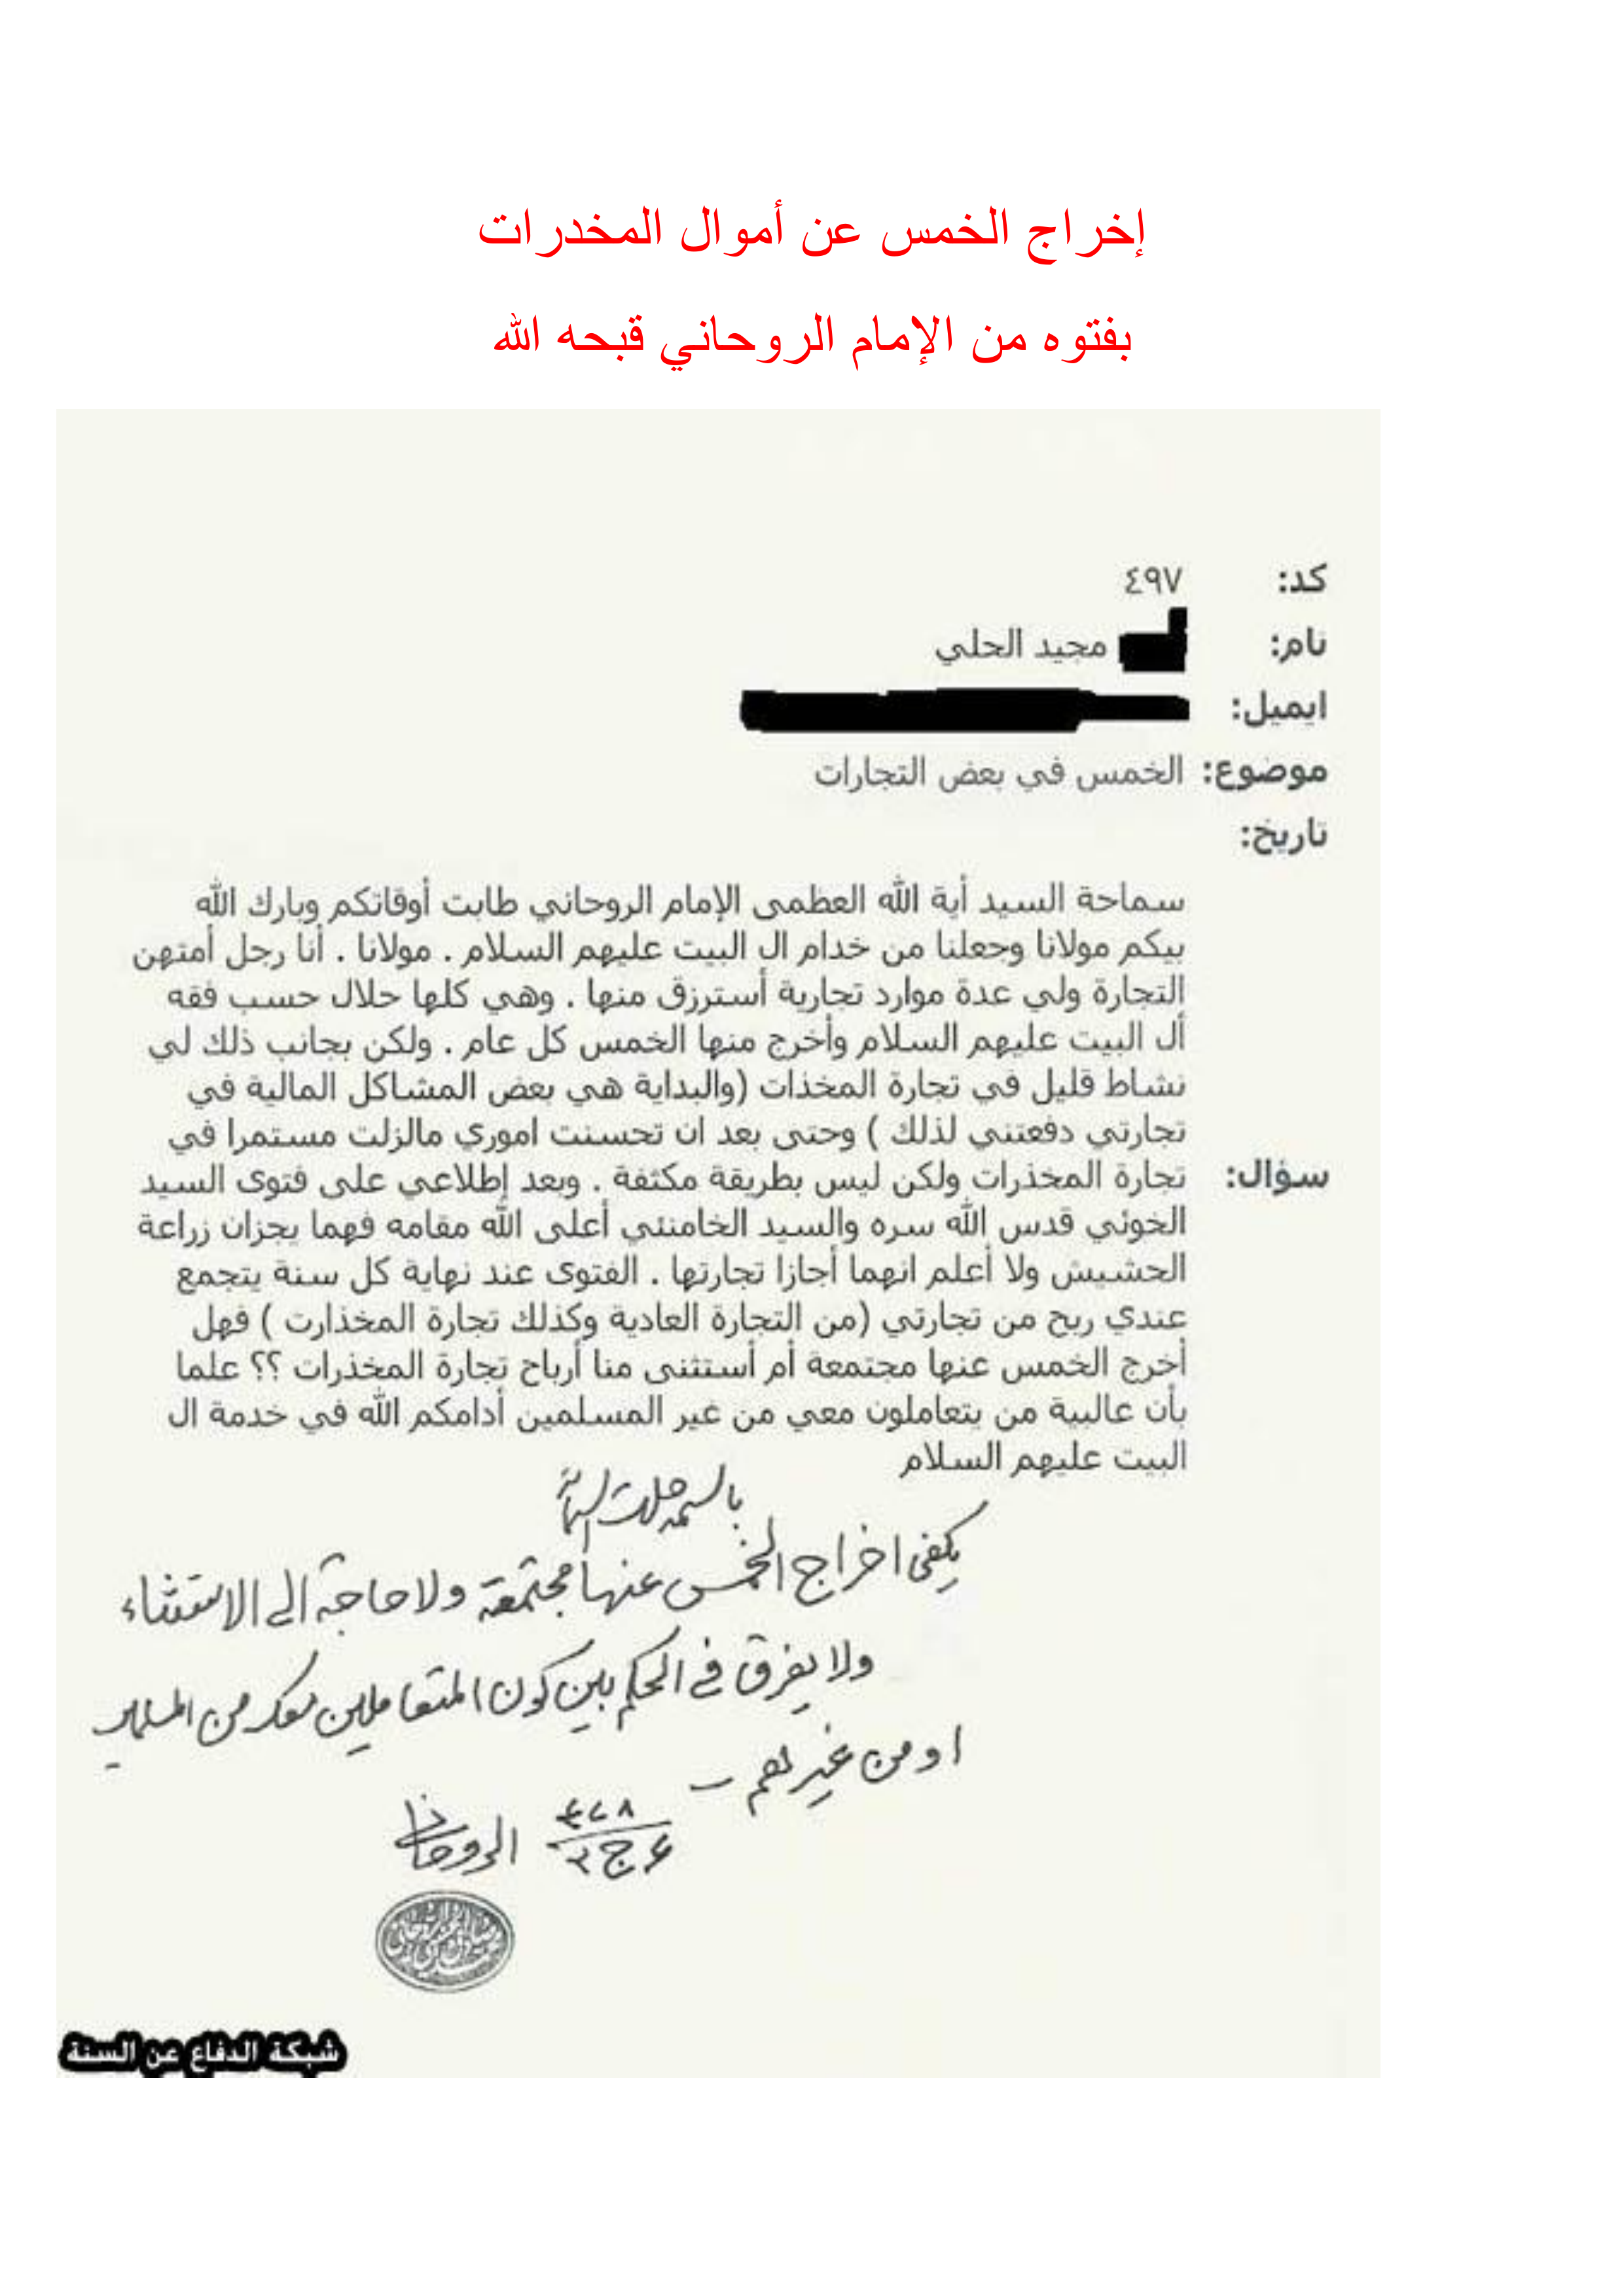 إخراج الخمس عن أموال المخدرات
بفتوه من الإمام الروحاني قبحه الله
كد: ٤٩٧
نام: مجيد الحلي
ايميل:
موضوع: الخمس في بعض التجارات
تاريخ:
سماحة السيد أية الله العظمى الإمام الروحاني طابت أوقاتكم وبارك الله
بيكم مولانا وجعلنا من خدام ال البيت عليهم السلام . مولانا . أنا رجل أمتهن
التجارة ولي عدة موارد تجارية أسترزق منها . وهي كلها حلال حسب فقه
أل البيت عليهم السلام وأخرج منها الخمس كل عام . ولكن بجانب ذلك لي
نشاط قليل في تجارة المخذات (والبداية هي بعض المشاكل المالية في
تجارتي دفعتني لذلك ) وحتى بعد ان تحسنت اموري مالزلت مستمرا في
سؤال: تجارة المخذرات ولكن ليس بطريقة مكثفة . وبعد إطلاعي على فتوى السيد
الخوئي قدس الله سره والسيد الخامنئي أعلى الله مقامه فهما يجزان زراعة
الحشيش ولا أعلم انهما أجازا تجارتها . الفتوى عند نهاية كل سنة يتجمع
عندي ربح من تجارتي (من التجارة العادية وكذلك تجارة المخذارت ) فهل
أخرج الخمس عنها مجتمعة أم أستثنى منا أرباح تجارة المخذرات ؟؟ علما
بأن عالبية من يتعاملون معي من غير المسلمين أدامكم الله في خدمة ال
البيت عليهم السلام
باسمه جلت اسمائه
يكفى اخراج الخمس عنها مجتمعة ولا حاجة الى الاستثناء
ولا يفرق في الحكم بين كون المتعاملين معك من المسلمين
او من غيرهم
الروحاني
شبكة الدفاع عن السنة